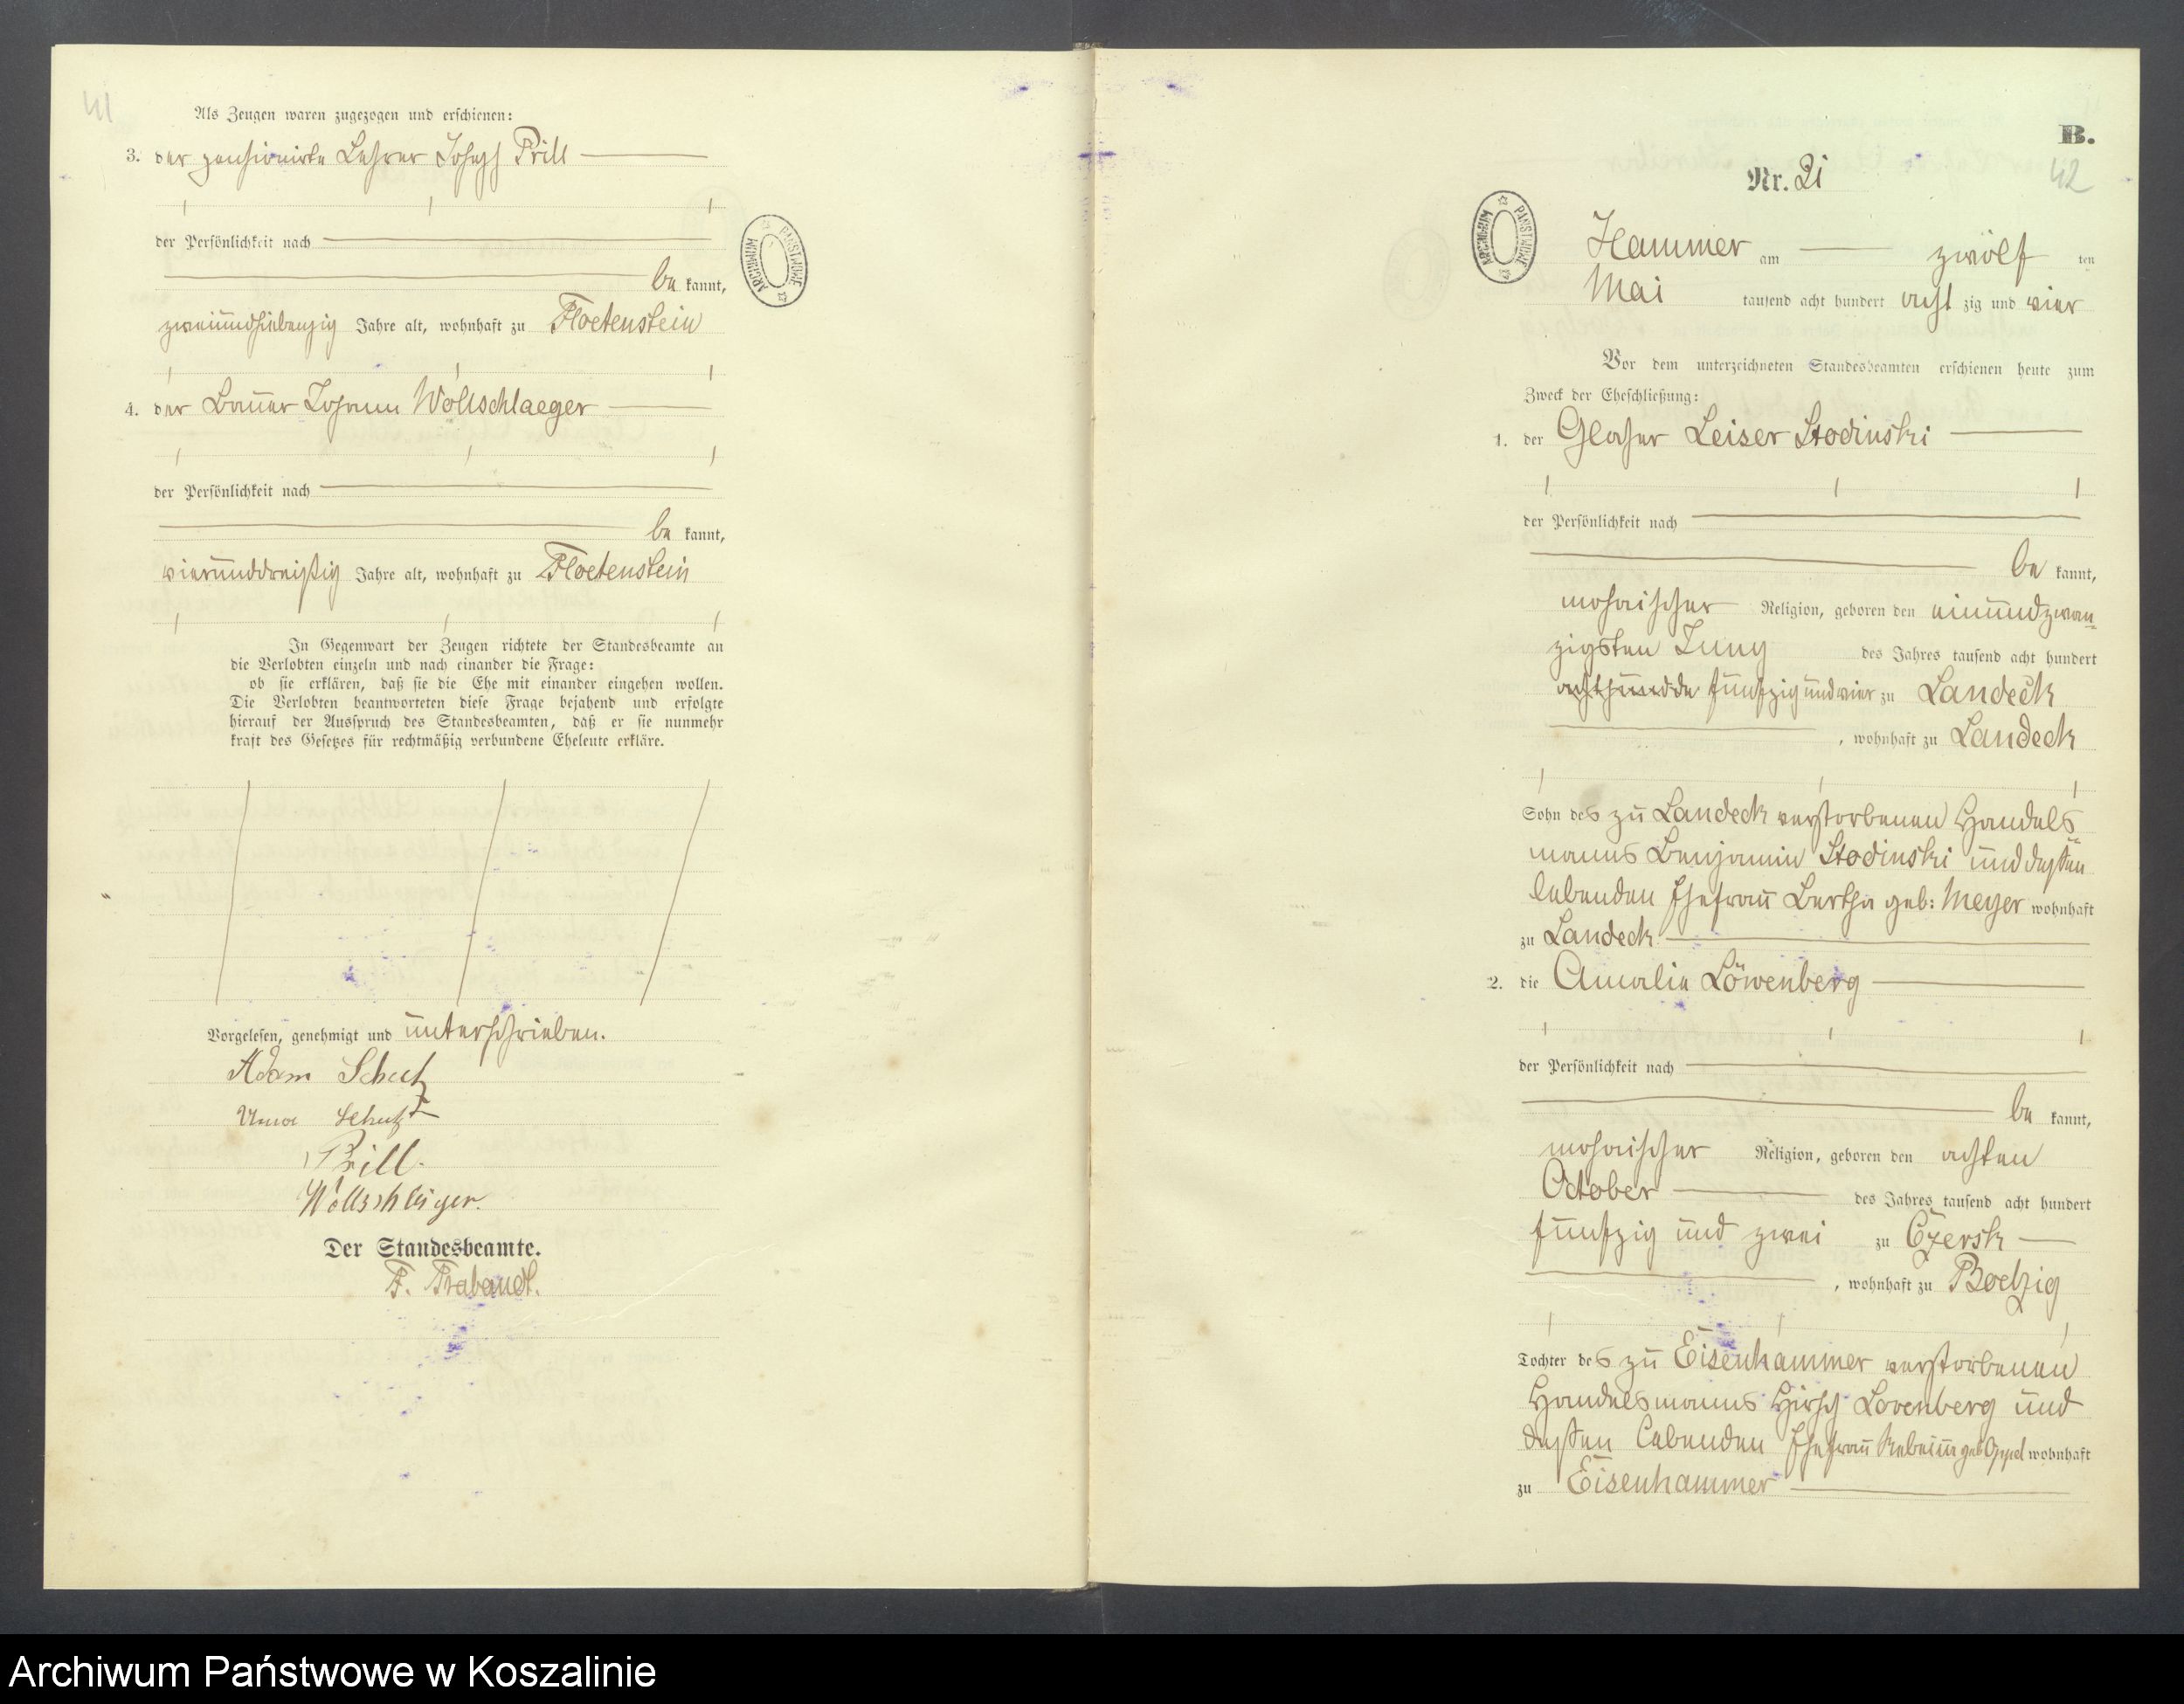 41
Als Zeugen waren zugezogen und erschienen:
3. der pensionirte Lehrer Joseph Prill
der Persönlichkeit nach
be kannt,
zweiundsiebenzig Jahre alt, wohnhaft zu Floetenstein
4. der Bauer Johann Wollschlaeger
der Persönlichkeit nach
be kannt,
vierunddreißig Jahre alt, wohnhaft zu Floetenstein
In Gegenwart der Zeugen richtete der Standesbeamte an
die Verlobten einzeln und nach einander die Frage:
ob sie erklären, daß sie die Ehe mit einander eingehen wollen.
Die Verlobten beantworteten diese Frage bejahend und erfolgte
hierauf der Ausspruch des Standesbeamten, daß er sie nunmehr
kraft des Gesetzes für rechtmäßig verbundene Eheleute erkläre.
Vorgelesen, genehmigt und unterschrieben.
Adam Schutz
Schutz
Prill.
Wollschläger.
Der Standesbeamte.
F. Trabandt.
ARCHIWUM PAŃSTWOWE
B.
42
Nr. 21
ARCHIWUM PAŃSTWOWE
Hammer am zwölf ten
Mai tausend acht hundert acht zig und vier
Vor dem unterzeichneten Standesbeamten erschienen heute zum
Zweck der Eheschließung:
1. der Glaser Leiser Stodinski
der Persönlichkeit nach
be kannt,
mosaischer Religion, geboren den einundzwan-
zigsten Juny des Jahres tausend acht hundert
fünfzig und vier zu Landeck
, wohnhaft zu Landeck
Sohn des zu Landeck verstorbenen Handels-
manns Benjamin Stodinski und dessen
lebenden Ehefrau Bertha geb: Meyer wohnhaft
zu Landeck
2. die Amalie Löwenberg
der Persönlichkeit nach
be kannt,
mosaischer Religion, geboren den achten
October des Jahres tausend acht hundert
fünfzig und zwei zu Czersk
, wohnhaft zu Boelzig
Tochter des zu Eisenhammer verstorbenen
Handelsmanns Hirsch Lovenberg und
dessen lebenden Ehefrau geb Oppel wohnhaft
zu Eisenhammer
Archiwum Państwowe w Koszalinie